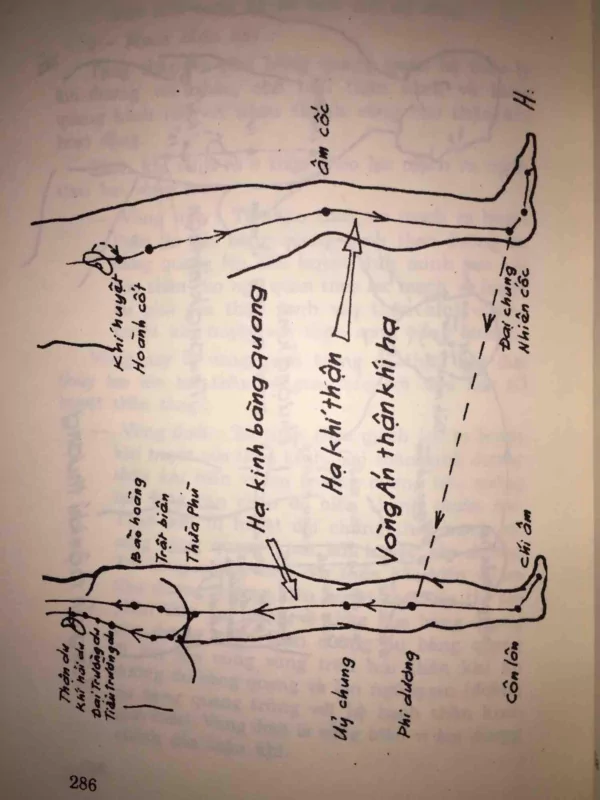 Thận du
Khí hải du
Đại Trường du
Tiểu trường du
Bào hoàng
Trật biên
Thừa Phù
Khí huyệt
Hoành cốt
Hạ kinh bàng quang
Hạ khí thận
Vòng Án thận khí hạ
âm cốc
Uỷ chung
Phi dương
Côn lôn
chí âm
Đại chung
Nhiên cốc
H:
286